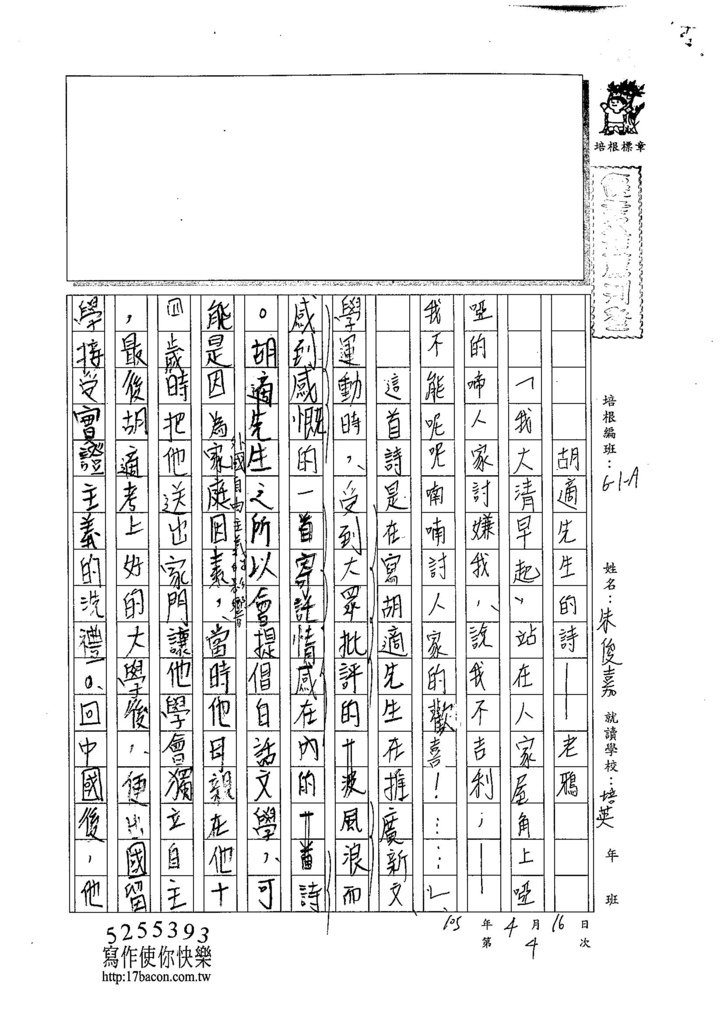 培根標章
培根編班：G1-A
姓名：朱俊嘉
就讀學校：培英
年
班
105年4月16日
第4次
胡適先生的詩——老鴉
「我大清早起，站在人家屋角上啞
啞的啼人家討嫌我，說我不吉利；——
我不能呢呢喃喃討人家的歡喜！……」
這首詩是在寫胡適先生在推廣新文
學運動時，受到大眾批評的十波風浪而
感到感慨的一首寄託情感在內的十首詩
。胡適先生之所以會提倡白話文學，可
能是因為家庭因素，當時他母親在他十
四歲時把他送出家門讓他學會獨立自主
，最後胡適考上好的大學後，便出國留
學接受實證主義的洗禮。回中國後，他
5255393
寫作使你快樂
http:17bacon.com.tw